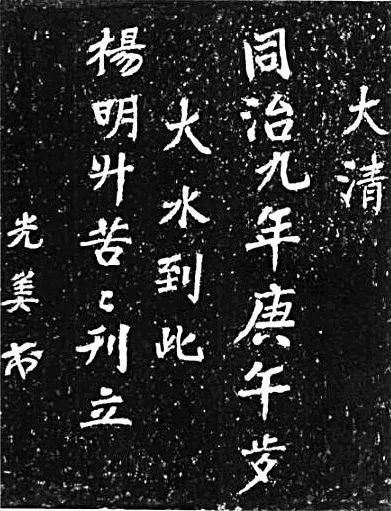 大清
同治九年庚午岁
大水到此
楊明升苦〻刊立
光美